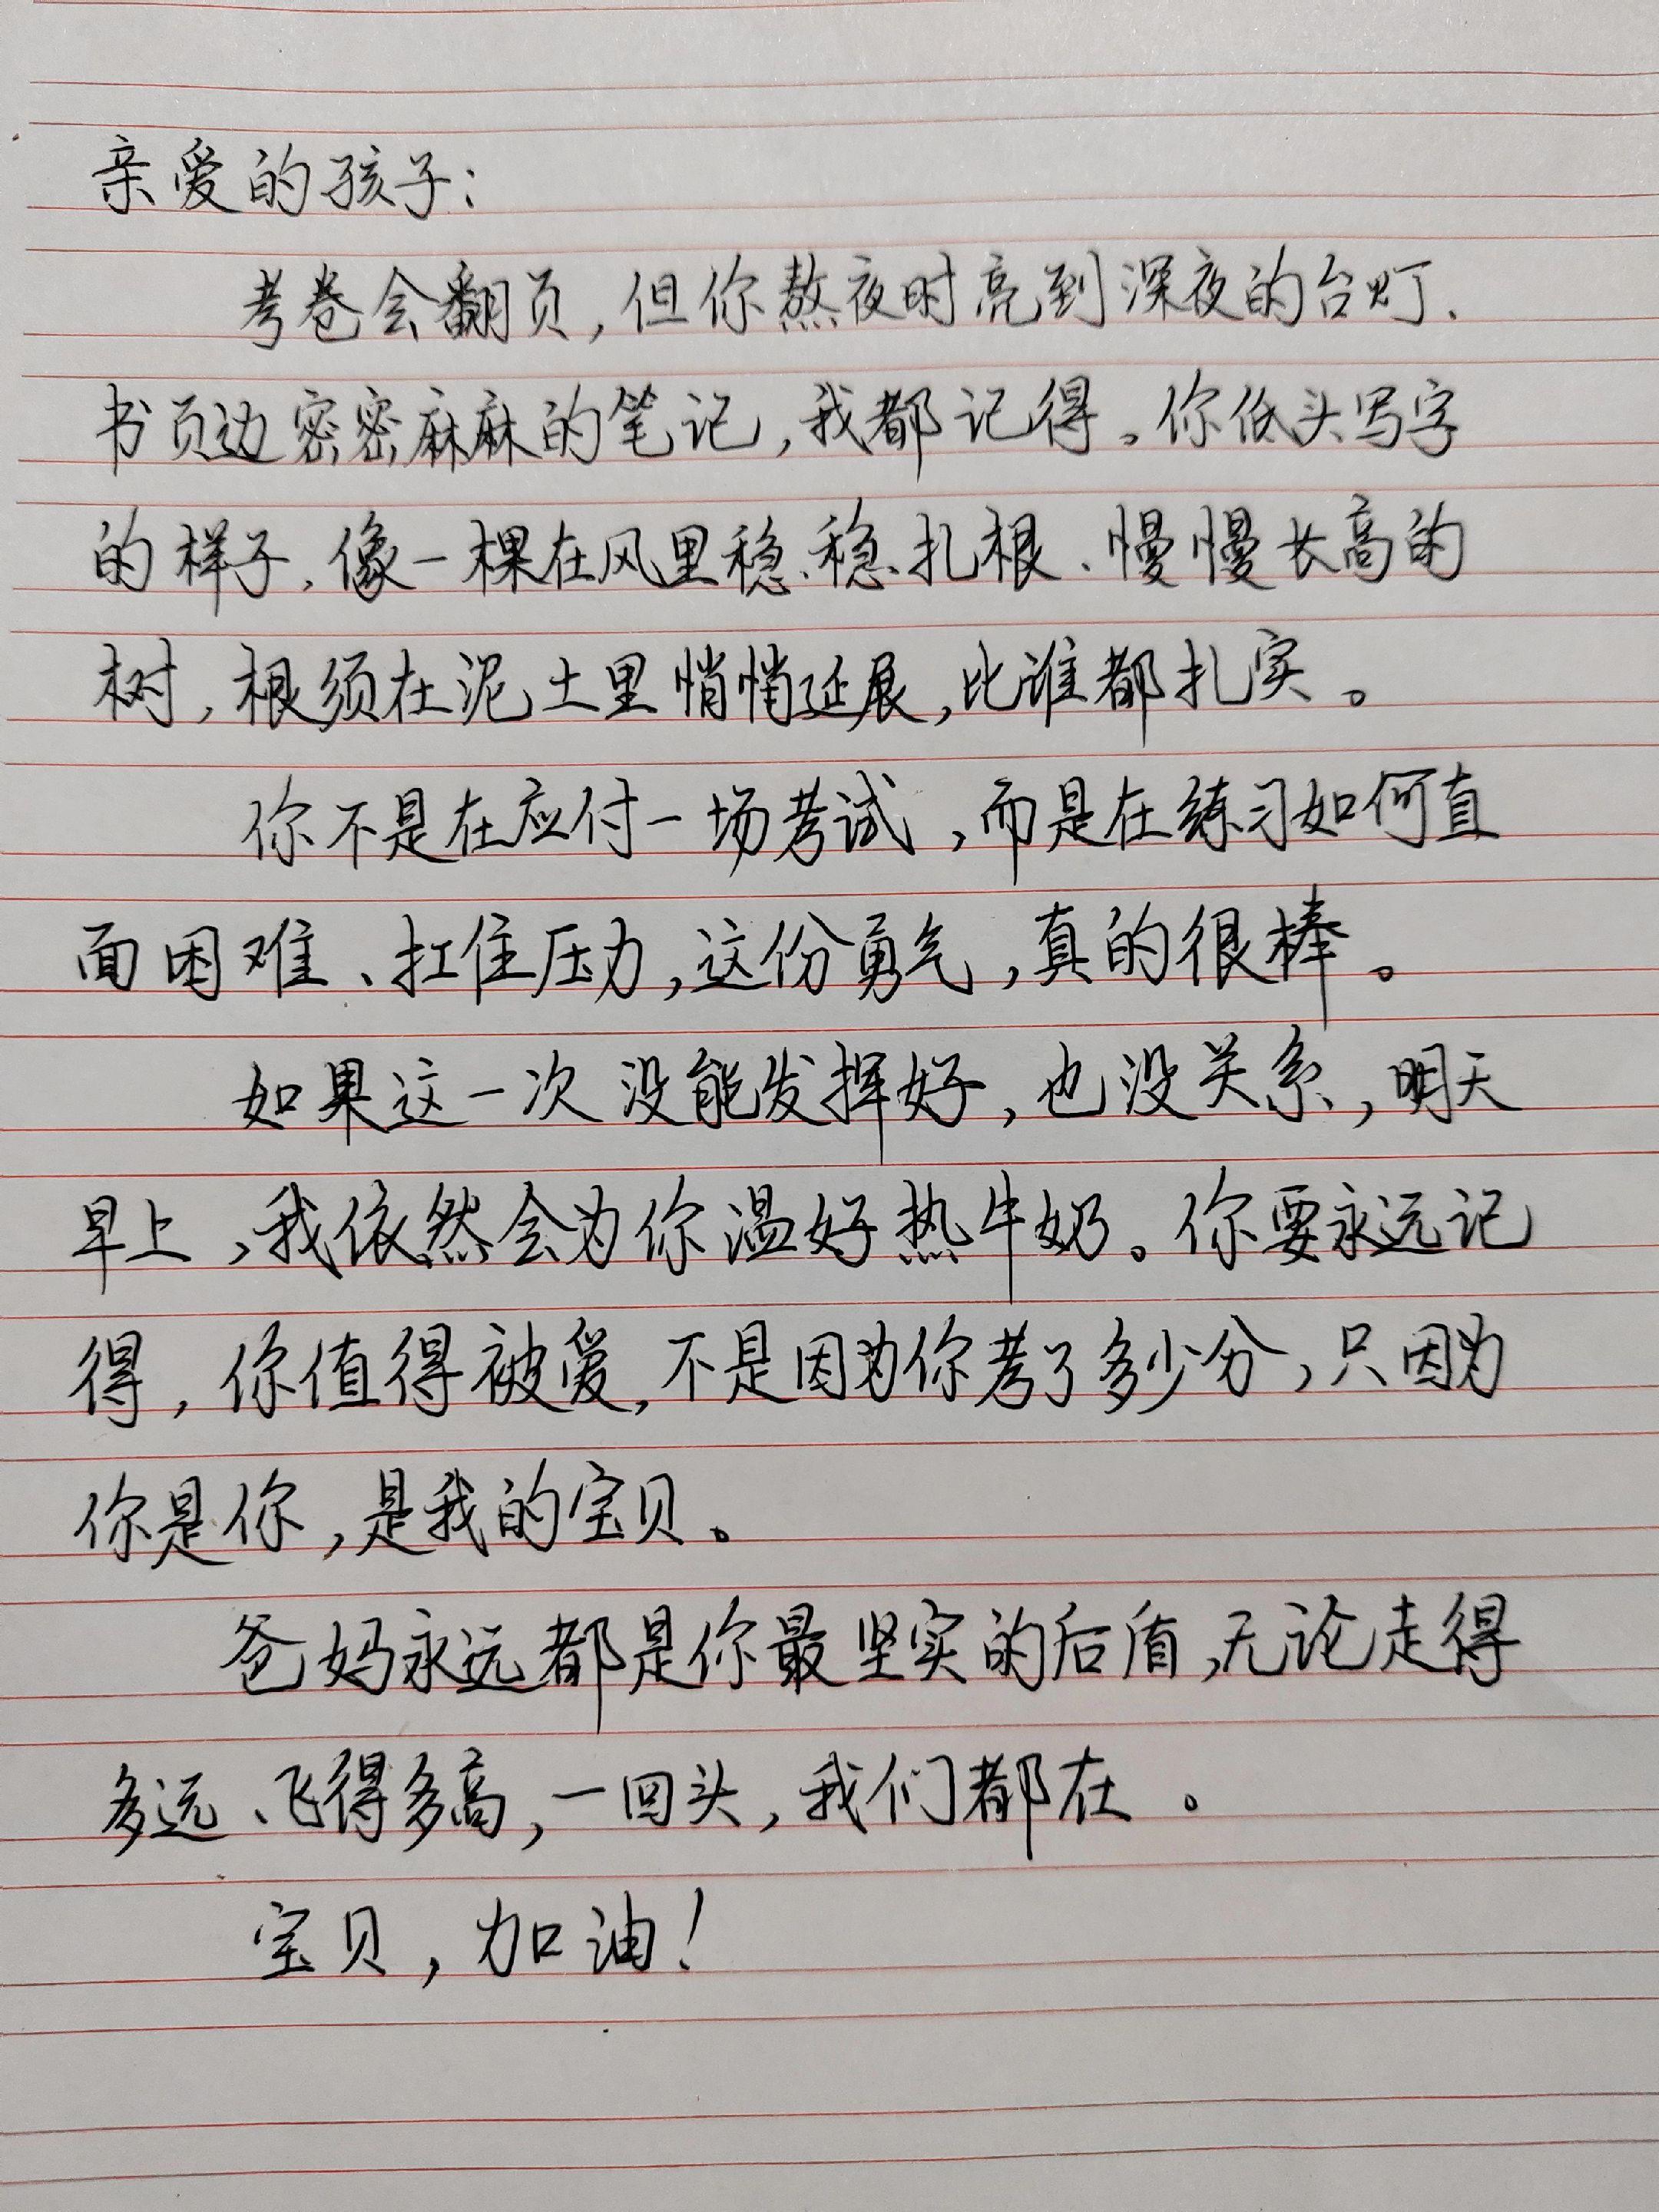 亲爱的孩子：
考卷会翻页，但你熬夜时亮到深夜的台灯、
书页边密密麻麻的笔记，我都记得。你低头写字
的样子，像一棵在风里稳稳扎根、慢慢长高的
树，根须在泥土里悄悄延展，比谁都扎实。
你不是在应付一场考试，而是在练习如何直
面困难、扛住压力，这份勇气，真的很棒。
如果这一次没能发挥好，也没关系，明天
早上，我依然会为你温好热牛奶。你要永远记
得，你值得被爱，不是因为你考了多少分，只因为
你是你，是我的宝贝。
爸妈永远都是你最坚实的后盾，无论走得
多远、飞得多高，一回头，我们都在。
宝贝，加油！